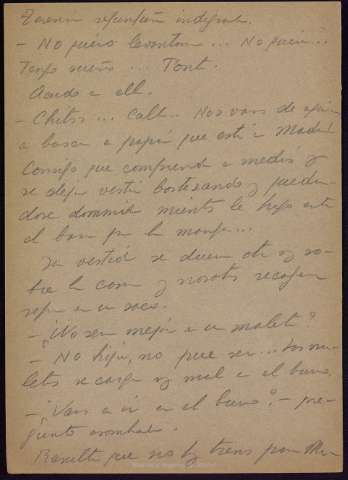 - No quiero levantarme... No quiero...
Tengo sueño... Tonta.
Acudo a ella.
- Chitss... Calla. Nos vamos de aquí
a buscar a papá que está en Madrid
Consigo que comprenda a medias y
se deje vestir bostezando y quedán-
dose dormida mientras le
el
Ya vestida se duerme otra vez so-
bre la cama y nosotras recogemos
ropa en un saco.
- ¿No será mejor en una maleta?
- No hija, no puede ser... Las ma-
letas se cargan muy mal en el burro.
- ¿Vamos a ir en el burro? - pre-
gunto asombrada.
Resulta que no hay trenes para